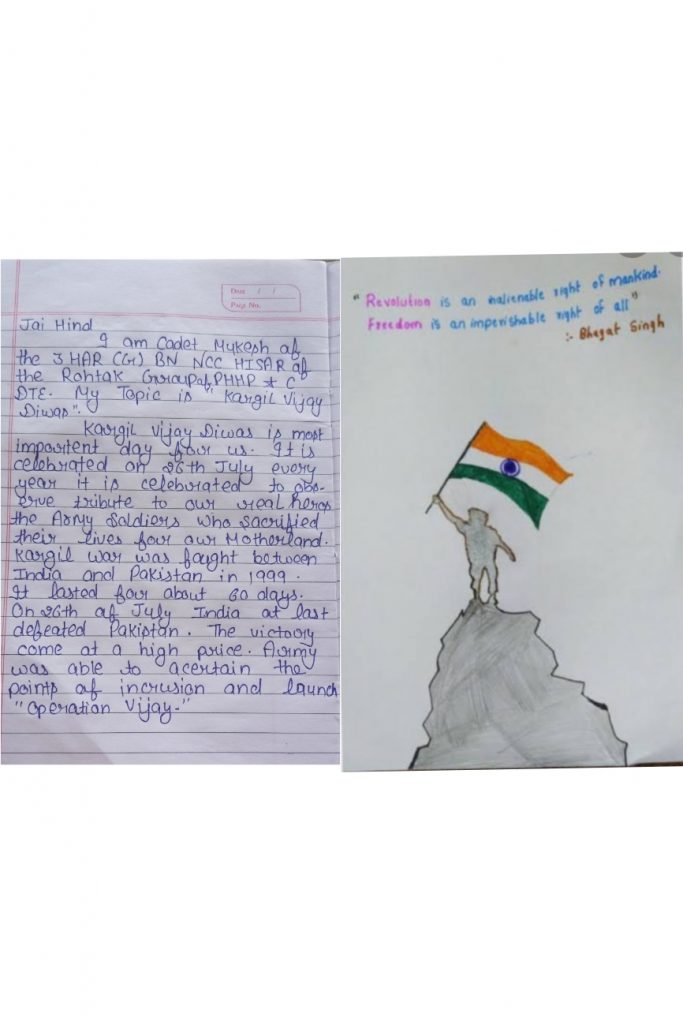 Date / /
Page No.
Jai Hind
I am Cadet Mukesh of
the 3 HAR (G) BN NCC HISAR of
the Rohtak Group of PHHP & C
DTE. My Topic is "Kargil Vijay
Diwas".
Kargil Vijay Diwas is most
importent day four us. It is
celebrated on 26th July every
year it is celebrated to obs-
erve tribute to our real heros
the Army Soldiers who sacrified
their lives four our Motherland.
Kargil war was fought between
India and Pakistan in 1999.
It lasted four about 60 days.
On 26th of July India at last
defeated Pakistan. The victory
come at a high price. Army
was able to acertain the
points of incrusion and launch
"Operation Vijay."
"Revolution is an inalienable right of mankind.
Freedom is an imperishable right of all"
:- Bhagat Singh